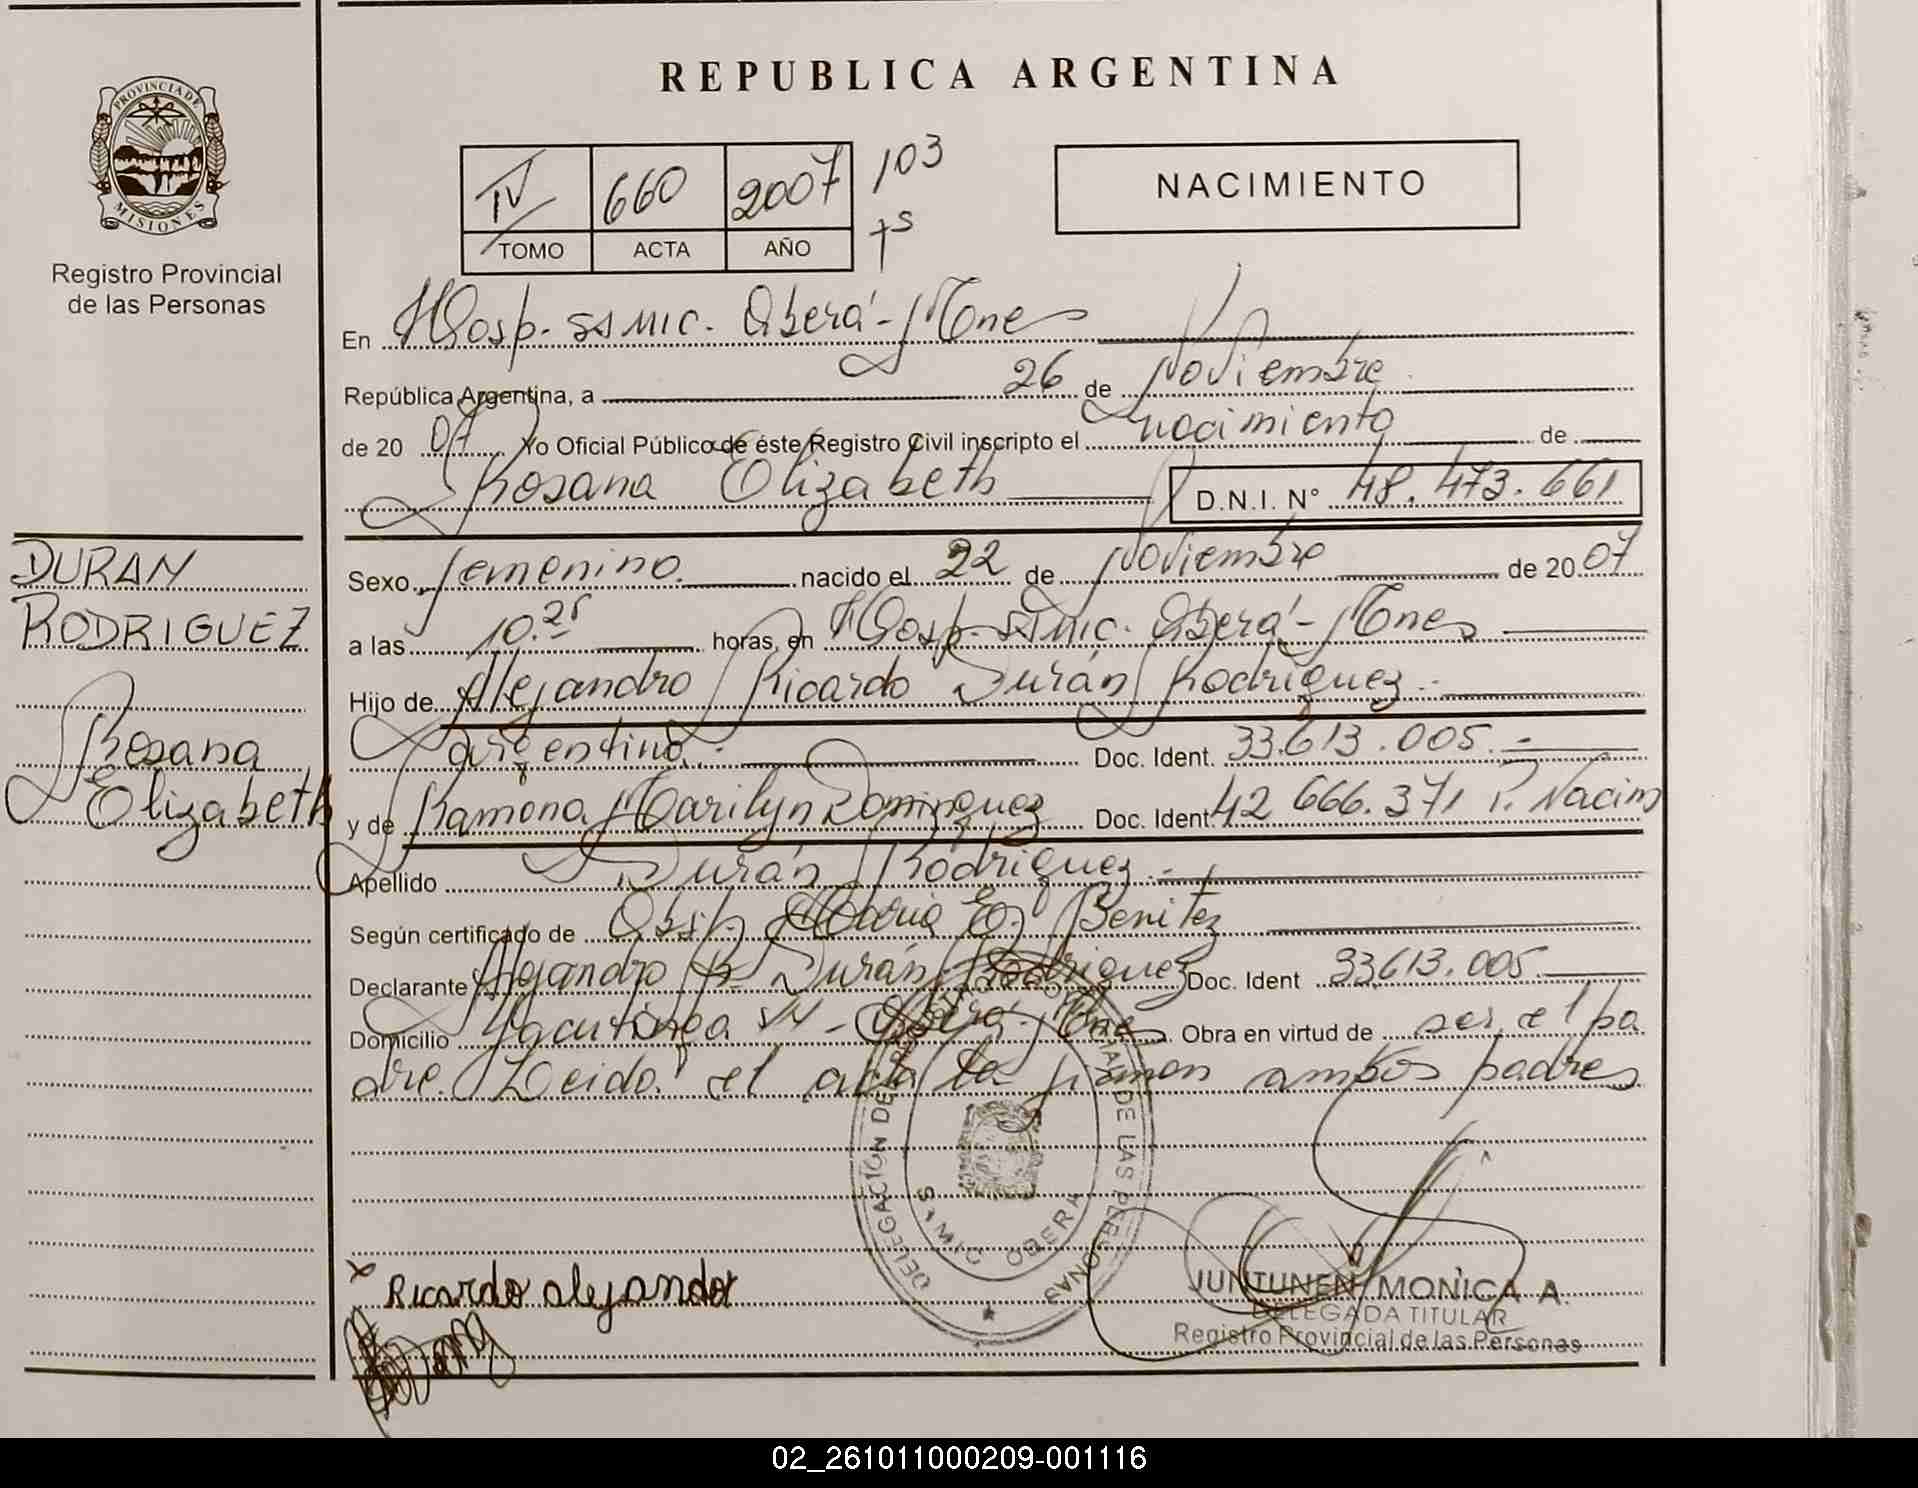 REPUBLICA ARGENTINA
PROVINCIA DE
MISIONES
Registro Provincial
de las Personas
IV 660 2007 103
TOMO ACTA AÑO
NACIMIENTO
En Hosp. SAMIC. Oberá - Mnes
República Argentina, a 26 de Noviembre
de 2007 Yo Oficial Público de éste Registro Civil inscripto el nacimiento de
Rosana Elizabeth D.N.I. N° 48.473.661
DURAN
RODRIGUEZ
Rosana
Elizabeth
Sexo femenino. nacido el 22 de Noviembre de 2007
a las 10.25 horas, en Hosp. SAMIC. Oberá - Mnes
Hijo de Alejandro Ricardo Durán Rodríguez.-
argentino.- Doc. Ident. 33.613.005.-
y de Ramona Marilyn Dominguez Doc. Ident. 42 666.371 P. Nacim
Apellido Durán Rodríguez.-
Según certificado de Obst. Maria E. Benitez
Declarante Alejandro R. Durán Rodriguez Doc. Ident 33.613.005.
Domicilio Yacutinga S/N - Oberá - Mnes. Obra en virtud de ser el pa
dre. Leida el acta la firman ambos padres
DELEGACION DE REGISTRO PROVINCIAL DE LAS PERSONAS
SAMIC OBERA
x Ricardo alejandor
JUNTUNEN MONICA A.
DELEGADA TITULAR
Registro Provincial de las Personas
02_261011000209-001116